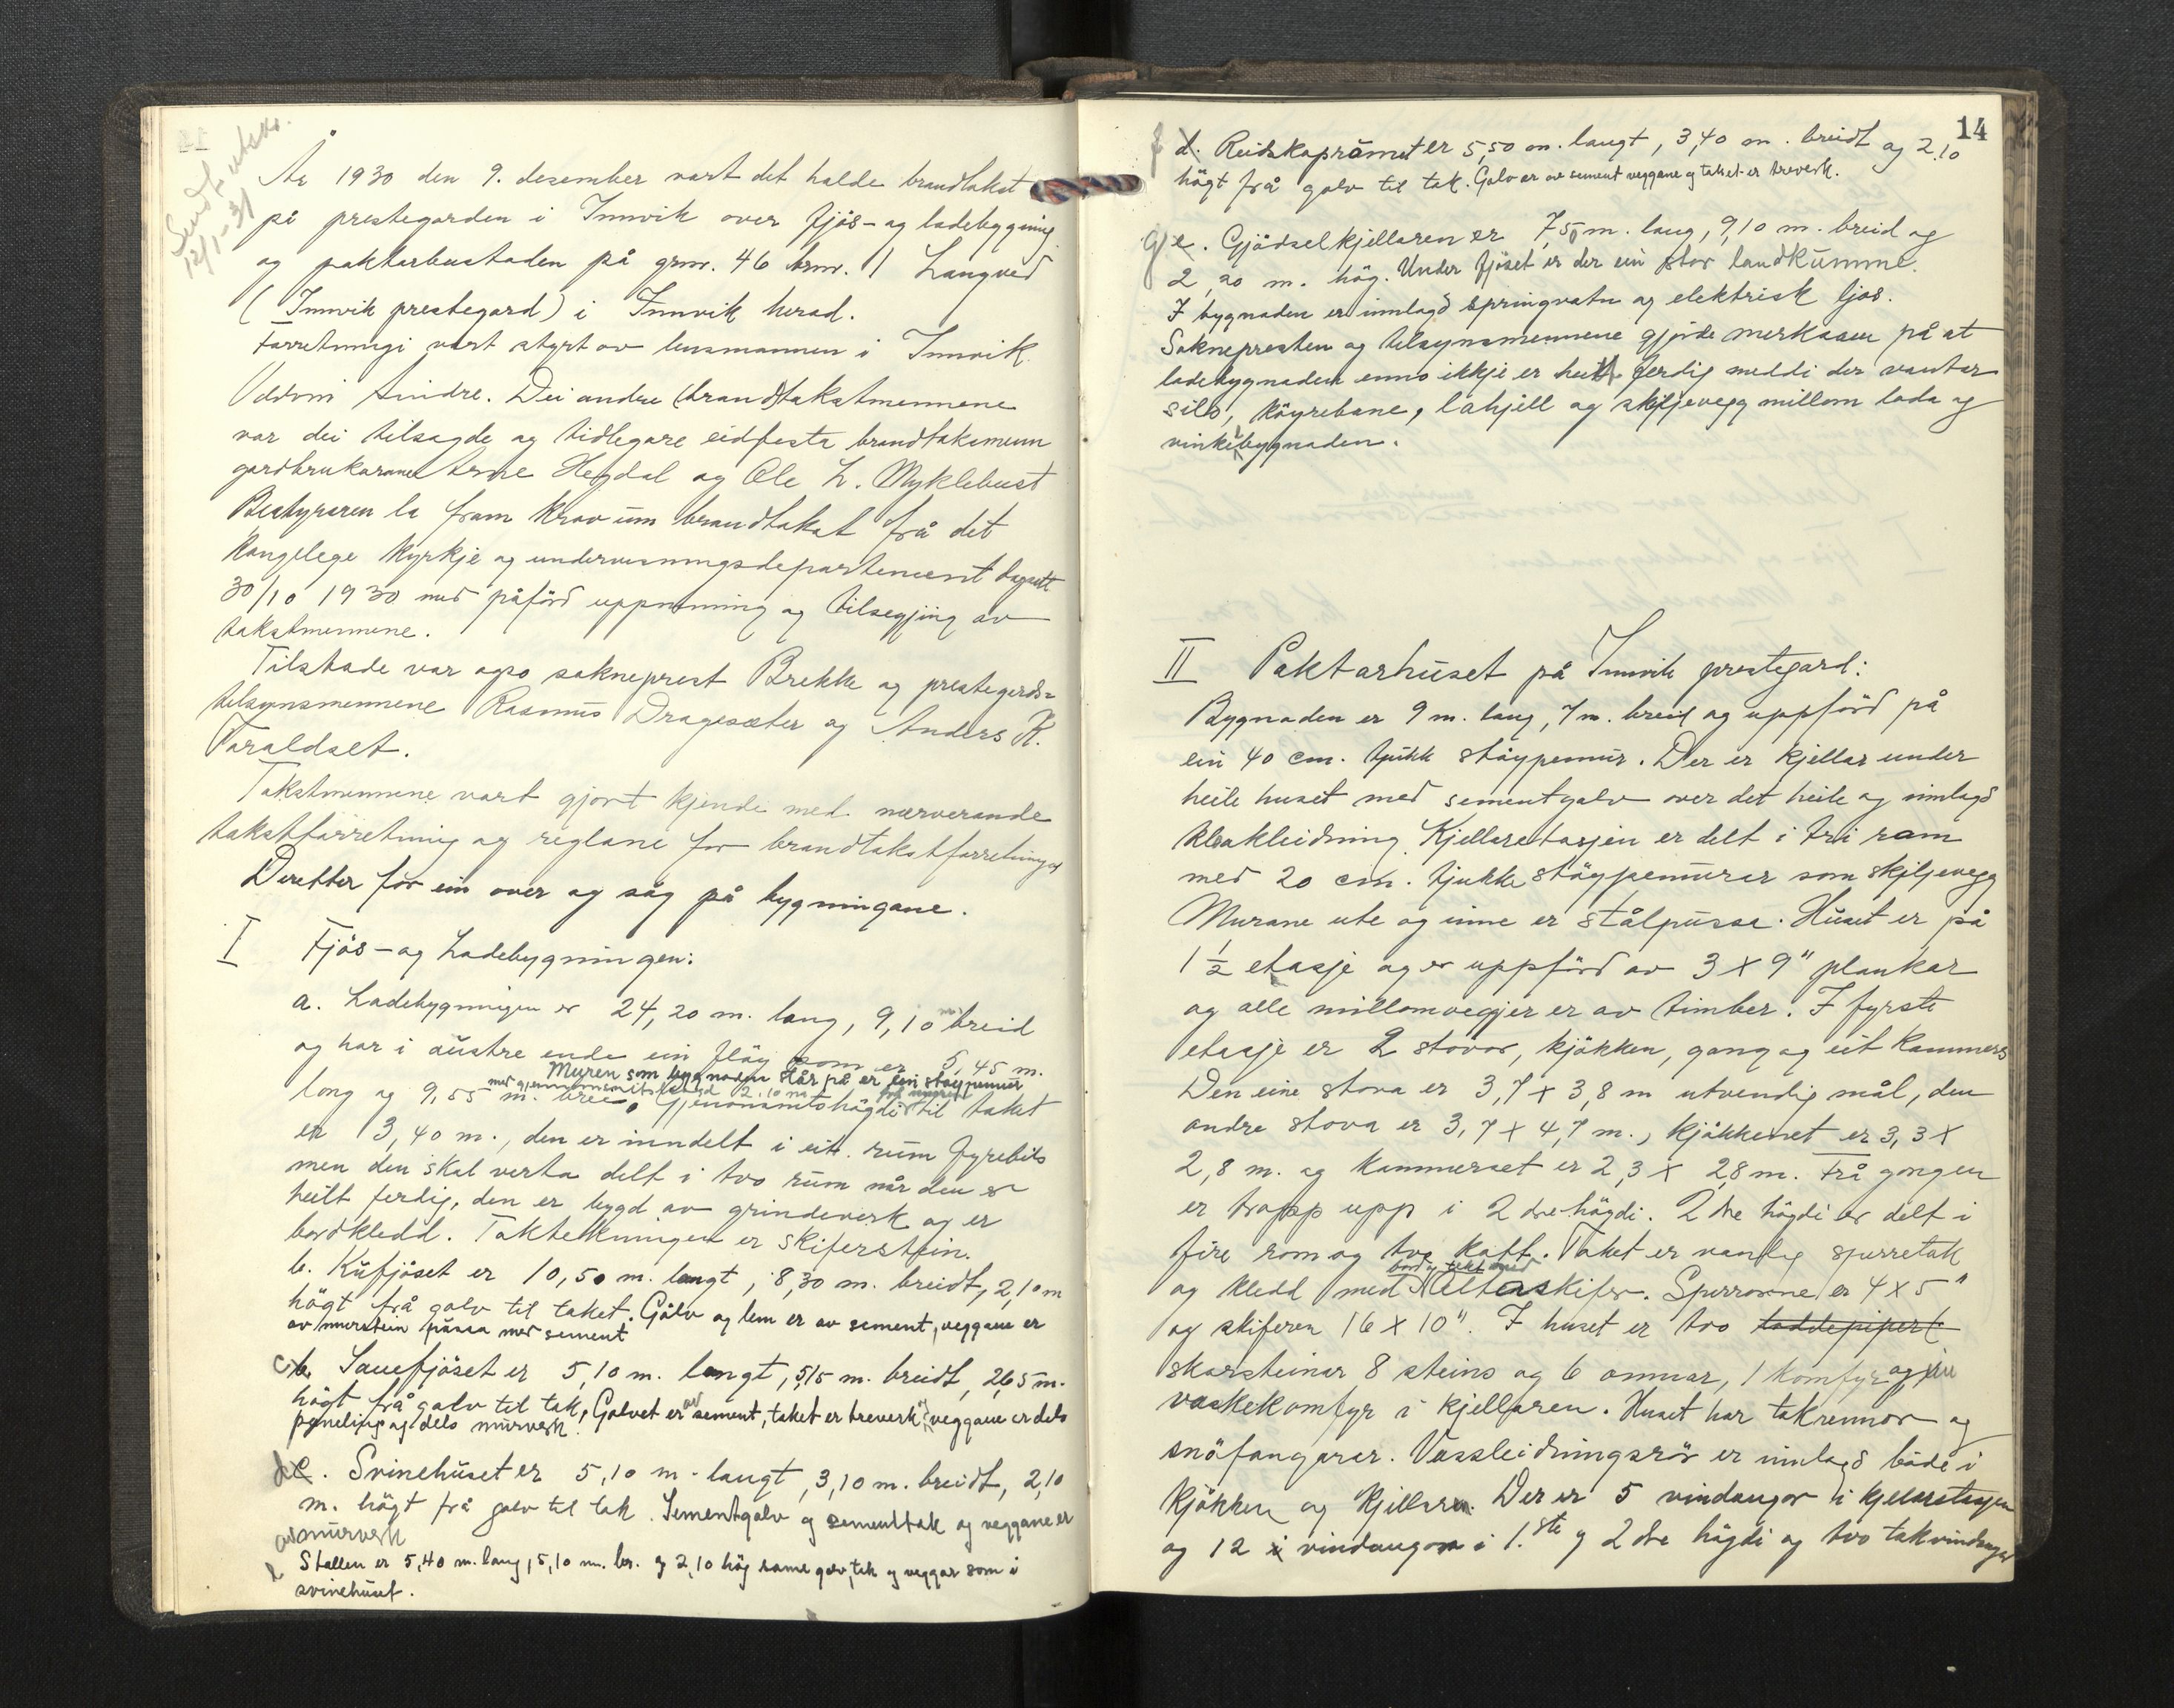 Sendt utskr.
12/1-31
År 1930 den 9. desember vart det halde brandtakst
på prestegarden i Innvik over fjös- og ladebygging
og paktarbustaden på grnr. 46 brnr. 1 Langved
(Innvik prestegard) i Innvik herad.
Forretningi vart styrt av lensmannen i Innvik
Oddvin Sindre. Dei andre brandtakstmennene
var dei tilsagde og tidlegare eidfesta brandtaksmenn
gardbrukarane Arne Hegdal og Ole L. Myklebust
Bestyraren la fram krav um brandtakst frå det
Kongelege Kyrkje og undervisningsdepartement dagsett
30/10 1930 med påförd uppnemning og tilsegjing av
takstmennene.
Tilstade var ogso sokneprest Brekke og prestegards=
tilsynsmennene Rasmus Dragesæter og Anders R.
Taraldset.
Takstmennene vart gjort kjende med nærverande
takstforretning og reglane for brandtakstforretningar
Deretter for ein over og såg på bygningane.
I Fjös- og Ladebygningen:
a. Ladebygningen er 24,20 m. lang, 9,10 m breid
og har i austre ende ein flöy som er 5,45 m.
Muren som bygnaden står på er ein stöypemur
med gjennomsnitshögd 2,10 m
long og 9,55 m. brei. Gjenomsnitshögdi til taket
er 3,40 m., den er inndelt i eit rum fyrebils
men den skal verta delt i tvo rum når den er
heilt ferdig, den er bygd av grindverk og er
bordkledd. Taktekningen er skiferstein.
b. Kufjöset er 10,50 m. langt, 8,30 m. breidt, 2,10 m
högt frå golv til taket. Golv og lem er av sement, veggane er
av murstein pussa med sement
c b. Sauefjöset er 5,10 m. langt, 5,15 m. breidt, 2,65 m.
högt frå golv til tak, Golvet er av sement, taket er treverk og veggane er dels
paneling og dels murverk.
d c. Svinehuset er 5,10 m. langt, 3,10 m. breidt, 2,10
m. högt frå golv til tak. Sementgolv og sementtak og veggane er
av murverk
e Stallen er 5,40 m. lang, 5,10 m. br. og 2,10 hög same golv, tak og veggar som i
svinehuset.
14
f d. Reidskaprümet er 5,50 m. langt, 3,40 m. breidt og 2,10
högt frå golv til tak. Golv er av sement veggane og taket er treverk.
g e. Gjödselkjellaren er 7,50 m. lang, 9,10 m. breid og
2,20 m. hög. Under fjöset er der ein stor landkumme.
I bygnaden er innlagd springvatn og elektrisk ljos.
Soknepresten og tilsynsmennene gjorde merksam på at
ladebygnaden enno ikkje er heilt ferdig med di der vantar
silo, köyrebane, låhjell og skiljevegg millom lada og
vinkelbygnaden.
II Paktarhuset på Innvik prestegard:
Bygnaden er 9 m. lang, 7 m. breid og uppförd på
ein 40 cm. tjukk stöypemur. Der er kjellar under
heile huset med sementgolv over det heile og innlagd
kloakleidning. Kjellaretasjen er delt i tri rom
med 20 cm. tjukke stöypemurar som skiljevegg
Murane ute og inne er stålpussa. Huset er på
1 ½ etasje og er uppförd av 3 x 9" plankar
og alle millomvegjer er av timber. I fyrste
etasje er 2 stovor, kjökken, gang og eit kammers
Den eine stova er 3,7 x 3,8 m utvendig mål, den
andre stova er 3,7 x 4,7 m., kjökkenet er 3,3 x
2,8 m. og kammerset er 2,3 x 2,8 m. Frå gongen
er trapp upp i 2dre högdi. 2dre högdi er delt i
fire rom og tvo kott. Taket er vanleg sperretak
bord og tekt med
og kledd med Altaskifer. Sperrorne er 4 x 5"
og skiferen 16 x 10". I huset er tvo toddepipert
skorsteinar 8 steins og 6 omnar, 1 komfyr og ein
vaskekomfyr i kjellaren. Huset har takrennor og
snöfangarar. Vassleidningsrör er innlagd både i
kjökken og kjellar. Der er 5 vindaugor i kjellaretasjen
og 12 i vindaugor i 1.ste og 2dre högdi og tvo takvindaugor